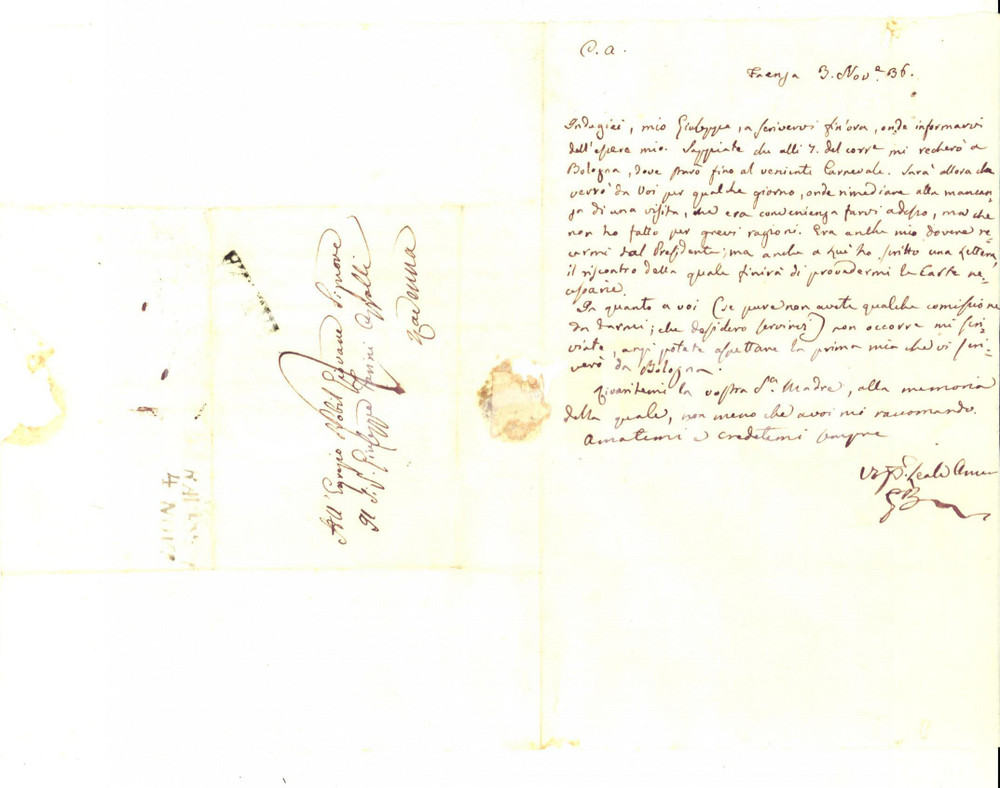 C. a.
Faenza 3. Nov.e 36.
Indugiai, mio Giuseppe, a scrivervi fin'ora, onde informarvi
dell'essere mio. Sappiate che alli 7. del corr.e mi recherò a
Bologna, dove starò fino al veniente Carnevale. Sarà allora che
verrò da voi per qualche giorno, onde rimediare alla mancan-
za di una visita, che era convenienza farvi adesso, ma che
non ho fatto per grevi ragioni. Era anche mio dovere re-
carmi dal Presidente; ma anche a lui ho scritto una lettera,
il riscontro della quale finirà di provvedermi le Carte ne-
cessarie.
In quanto a voi (se pure non avete qualche comissione
da darmi; che desidero servirvi) non occorre mi scri-
viate, anzi potete aspettare la prima mia che vi scri-
verò da Bologna.
Riveritemi la vostra S.ra Madre, alla memoria
della quale, non meno che a voi mi raccomando.
Amatemi e credetemi sempre
leale Amico
All'Egregio Nobil Giovane Signore
Il S. Giuseppe Nanni
Ravenna
4 NOV